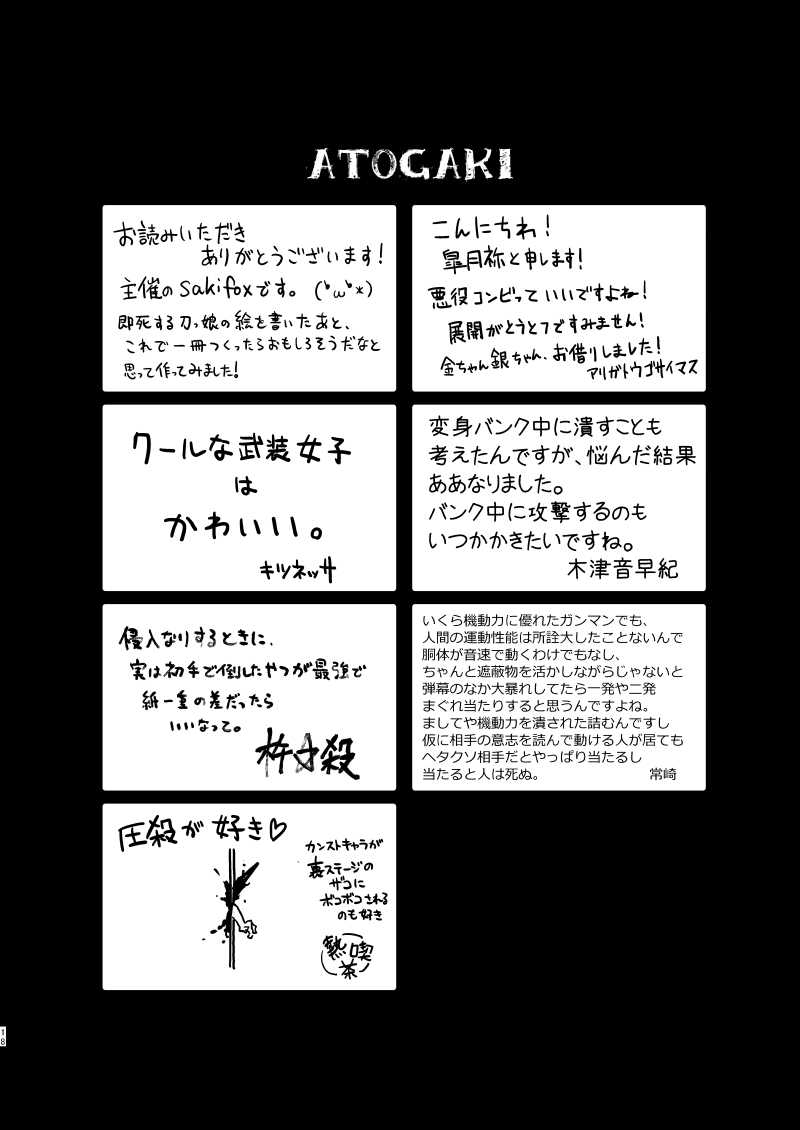 ATOGAKI
お読みいただき
ありがとうございます!
主催のsakifoxです。(*'ω'*)
即死する刀っ娘の絵を書いたあと、
これで一冊つくったらおもしろそうだなと
思って作ってみました!
こんにちわ!
皐月祢と申します!
悪役コンビっていいですよね!
展開がとうとつですみません!
金ちゃん銀ちゃん、お借りしました!
アリガトウゴサイマス
クールな武装女子
は
かわいい。
キツネッサ
変身バンク中に潰すことも
考えたんですが、悩んだ結果
ああなりました。
バンク中に攻撃するのも
いつかかきたいですね。
木津音早紀
侵入なりするときに、
実は初手で倒したやつが最強で
紙一重の差だったら
いいなって。
杵☆殺
いくら機動力に優れたガンマンでも、
人間の運動性能は所詮大したことないんで
胴体が音速で動くわけでもなし、
ちゃんと遮蔽物を活かしながらじゃないと
弾幕のなか大暴れしてたら一発や二発
まぐれ当たりすると思うんですよね。
ましてや機動力を潰された詰むんですし
仮に相手の意志を読んで動ける人が居ても
ヘタクソ相手だとやっぱり当たるし
当たると人は死ぬ。 常崎
圧殺が好き♡
カンストキャラが
裏ステージの
ザコに
ボコボコされる
のも好き
熱喫茶
18